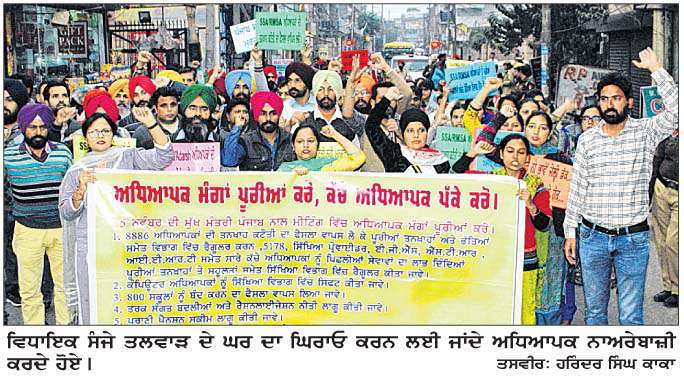 GIFT
PACK
SSA/RMSA
SSA/RMSA
ਅਧਿਆਪਕ ਮੰਗਾਂ ਪੂਰੀਆਂ ਕਰੋ, ਕੱਚੇ ਅਧਿਆਪਕ ਪੱਕੇ ਕਰੋ।
5 ਨਵੰਬਰ ਦੀ ਮੁੱਖ ਮੰਤਰੀ ਪੰਜਾਬ ਨਾਲ ਮੀਟਿੰਗ ਵਿੱਚ ਅਧਿਆਪਕ ਮੰਗਾਂ ਪੂਰੀਆਂ ਕਰੋ।
1. 8886 ਅਧਿਆਪਕਾਂ ਦੀ ਤਨਖਾਹ ਕਟੌਤੀ ਦਾ ਫੈਸਲਾ ਵਾਪਸ ਲੈ ਕੇ ਪੂਰੀਆਂ ਤਨਖਾਹਾਂ ਅਤੇ ਭੱਤਿਆਂ
ਸਮੇਤ ਵਿਭਾਗ ਵਿੱਚ ਰੈਗੂਲਰ ਕਰਨ ,5178, ਸਿੱਖਿਆ ਪ੍ਰੋਵਾਈਡਰ, ਈ.ਜੀ.ਐੱਸ, ਐੱਸ.ਟੀ.ਆਰ
ਆਈ.ਈ.ਆਰ.ਟੀ ਸਮੇਤ ਸਾਰੇ ਕੱਚੇ ਅਧਿਆਪਕਾਂ ਨੂੰ ਪਿਛਲੀਆਂ ਸੇਵਾਵਾਂ ਦਾ ਲਾਭ ਦਿੰਦਿਆਂ
ਪੂਰੀਆਂ ਤਨਖਾਹਾਂ ਤੇ ਸਹੂਲਤਾਂ ਸਮੇਤ ਸਿੱਖਿਆ ਵਿਭਾਗ ਵਿੱਚ ਰੈਗੂਲਰ ਕੀਤਾ ਜਾਵੇ।
2. ਕੰਪਿਊਟਰ ਅਧਿਆਪਕਾਂ ਨੂੰ ਸਿੱਖਿਆ ਵਿਭਾਗ ਵਿੱਚ ਸਿਫਟ ਕੀਤਾ ਜਾਵੇ।
3. 800 ਸਕੂਲਾਂ ਨੂੰ ਬੰਦ ਕਰਨ ਦਾ ਫੈਸਲਾ ਵਾਪਸ ਲਿਆ ਜਾਵੇ।
4. ਤਰਕ ਸੰਗਤ ਬਦਲੀਆਂ ਅਤੇ ਰੈਸ਼ਨਲਾਈਜੇਸ਼ਨ ਨੀਤੀ ਲਾਗੂ ਕੀਤੀ ਜਾਵੇ।
5. ਪੁਰਾਣੀ ਪੈਨਸ਼ਨ ਸਕੀਮ ਲਾਗੂ ਕੀਤੀ ਜਾਵੇ।
ਵਿਧਾਇਕ ਸੰਜੇ ਤਲਵਾੜ ਦੇ ਘਰ ਦਾ ਘਿਰਾਓ ਕਰਨ ਲਈ ਜਾਂਦੇ ਅਧਿਆਪਕ ਨਾਅਰੇਬਾਜ਼ੀ
ਕਰਦੇ ਹੋਏ।
ਤਸਵੀਰ: ਹਰਿੰਦਰ ਸਿੰਘ ਕਾਕਾ